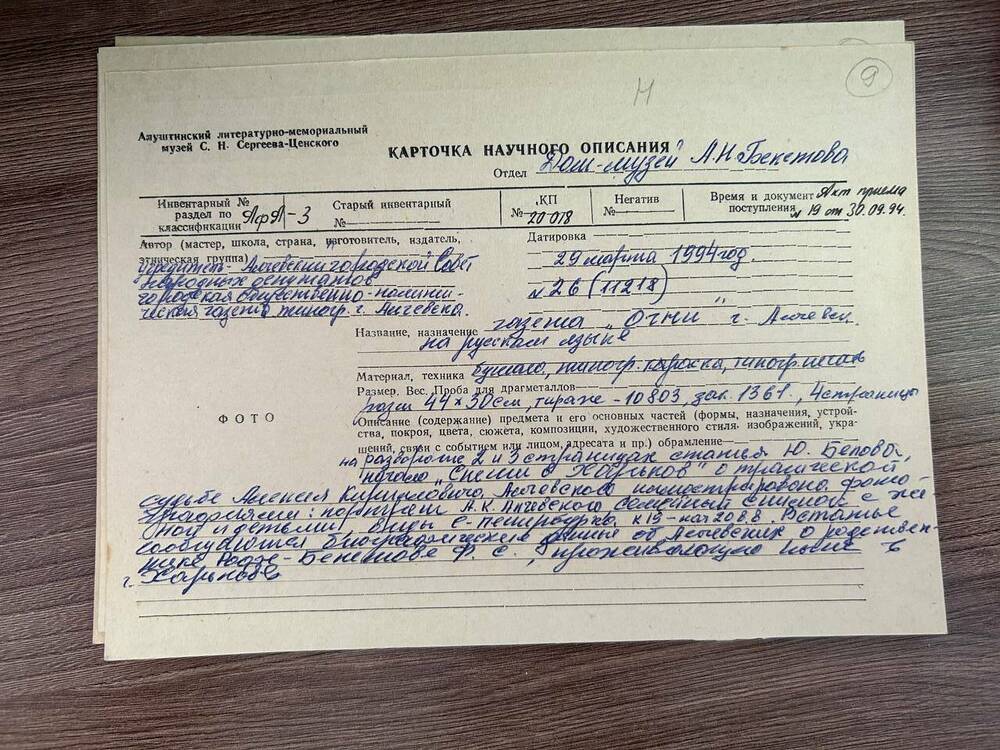 Н
9
Алуштинский литературно-мемориальный
музей С. Н. Сергеева-Ценского
КАРТОЧКА НАУЧНОГО ОПИСАНИЯ
Отдел Дом-музей А.Н Бекетова
Инвентарный №
раздел по
классификации АфА-3
Старый инвентарный
№
КП
№ 20 018
Негатив
№
Время и документ Акт приема
поступления № 19 от 30.09.94.
Автор (мастер, школа, страна, изготовитель, издатель,
этническая группа)
учредитель - Алчевский городской Совет
народных депутатов
городская общественно-полити-
ческая газета типогр. г. Алчевска.
Датировка
29 марта 1994 год.
№ 26 (11218)
Название, назначение газета „Огни" г. Алчевск.
на русском языке
Материал, техника бумага, типогр. краска, типогр. печать
Размер. Вес. Проба для драгметаллов
разм 44 × 30 см, тираж - 10803, зак. 1361., 4 страницы
ФОТО
Описание (содержание) предмета и его основных частей (формы, назначения, устрой-
ства, покроя, цвета, сюжета, композиции, художественного стиля, изображений, укра-
шений, связи с событием или лицом, адресата и пр.) обрамление
на развороте 2 и 3 страницах статья Ю. Белова,
о трагической
судьбе Алексея Кирилловича Алчевского иллюстрирована фото-
графиями: портрет А.К. Алчевского семейный снимок с же-
ной и детьми, виды С-петербурга к 19 - нач 20 в в. В статье
сообщаются биографические об Алчевских о родствен-
нике Ф. С., проживающую ныне в
г. Харькове